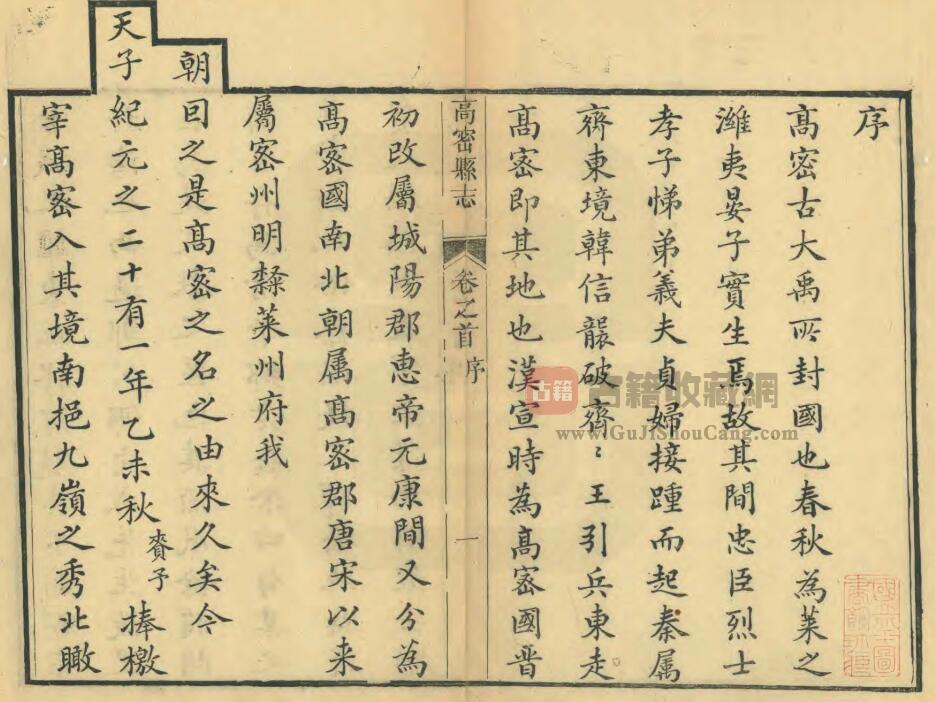 序
髙宻古大禹所封國也春秋為萊之
濰夷晏子實生焉故其間忠臣烈士
孝子悌弟義夫貞婦接踵而起秦属
齊東境韓信襲破齊〻王引兵東走
髙宻即其地也漢宣時為髙宻國晋
高密縣志 卷之首 序 一
初改屬城陽郡恵帝元康間又分為
髙宻國南北朝属髙宻郡唐宋以来
屬宻州明隸萊州府我
朝因之是髙宻之名之由來久矣今
天子紀元之二十有一年乙未秋賚予捧檄
宰髙宻入其境南挹九嶺之秀北瞰
古籍 古籍收藏網
www.GuJiShouCang.com